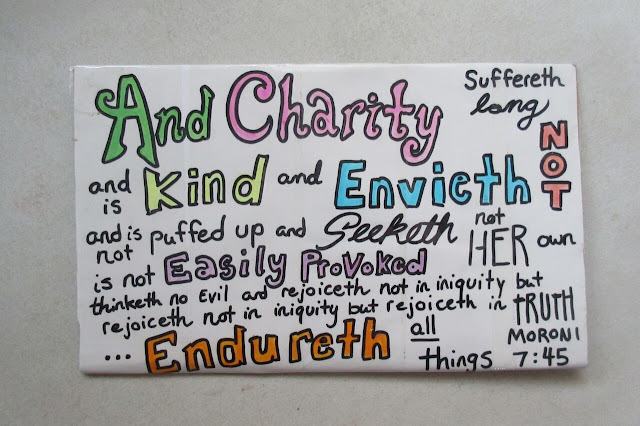 And Charity Suffereth long
and is Kind and Envieth NOT
and is not puffed up and Seeketh not HER own
is not Easily Provoked
thinketh no Evil and rejoiceth not in iniquity but
rejoiceth not in iniquity but rejoiceth in TRUTH
... Endureth all things
MORONI 7:45